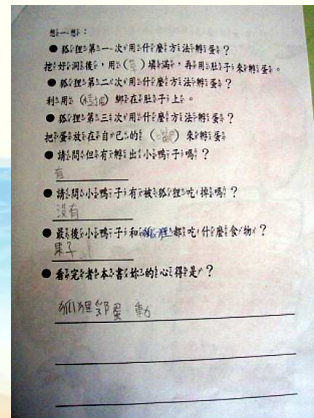 想一想：
● 狐狸第一次用什麼方法孵蛋？
挖好洞後，用（　）填滿，再用肚子來孵蛋。
● 狐狸第二次用什麼方法孵蛋？
利用（　）綁在肚子上。
● 狐狸第三次用什麼方法孵蛋？
把蛋放在自己的（嘴）來孵蛋
● 請問但有孵出小鴨子嗎？
有
● 請問小鴨子有被狐狸吃掉嗎？
沒有
● 最後小鴨子和狐狸都吃什麼食物？
果子
● 看完者本書妳的心得是？
狐狸 蛋 動